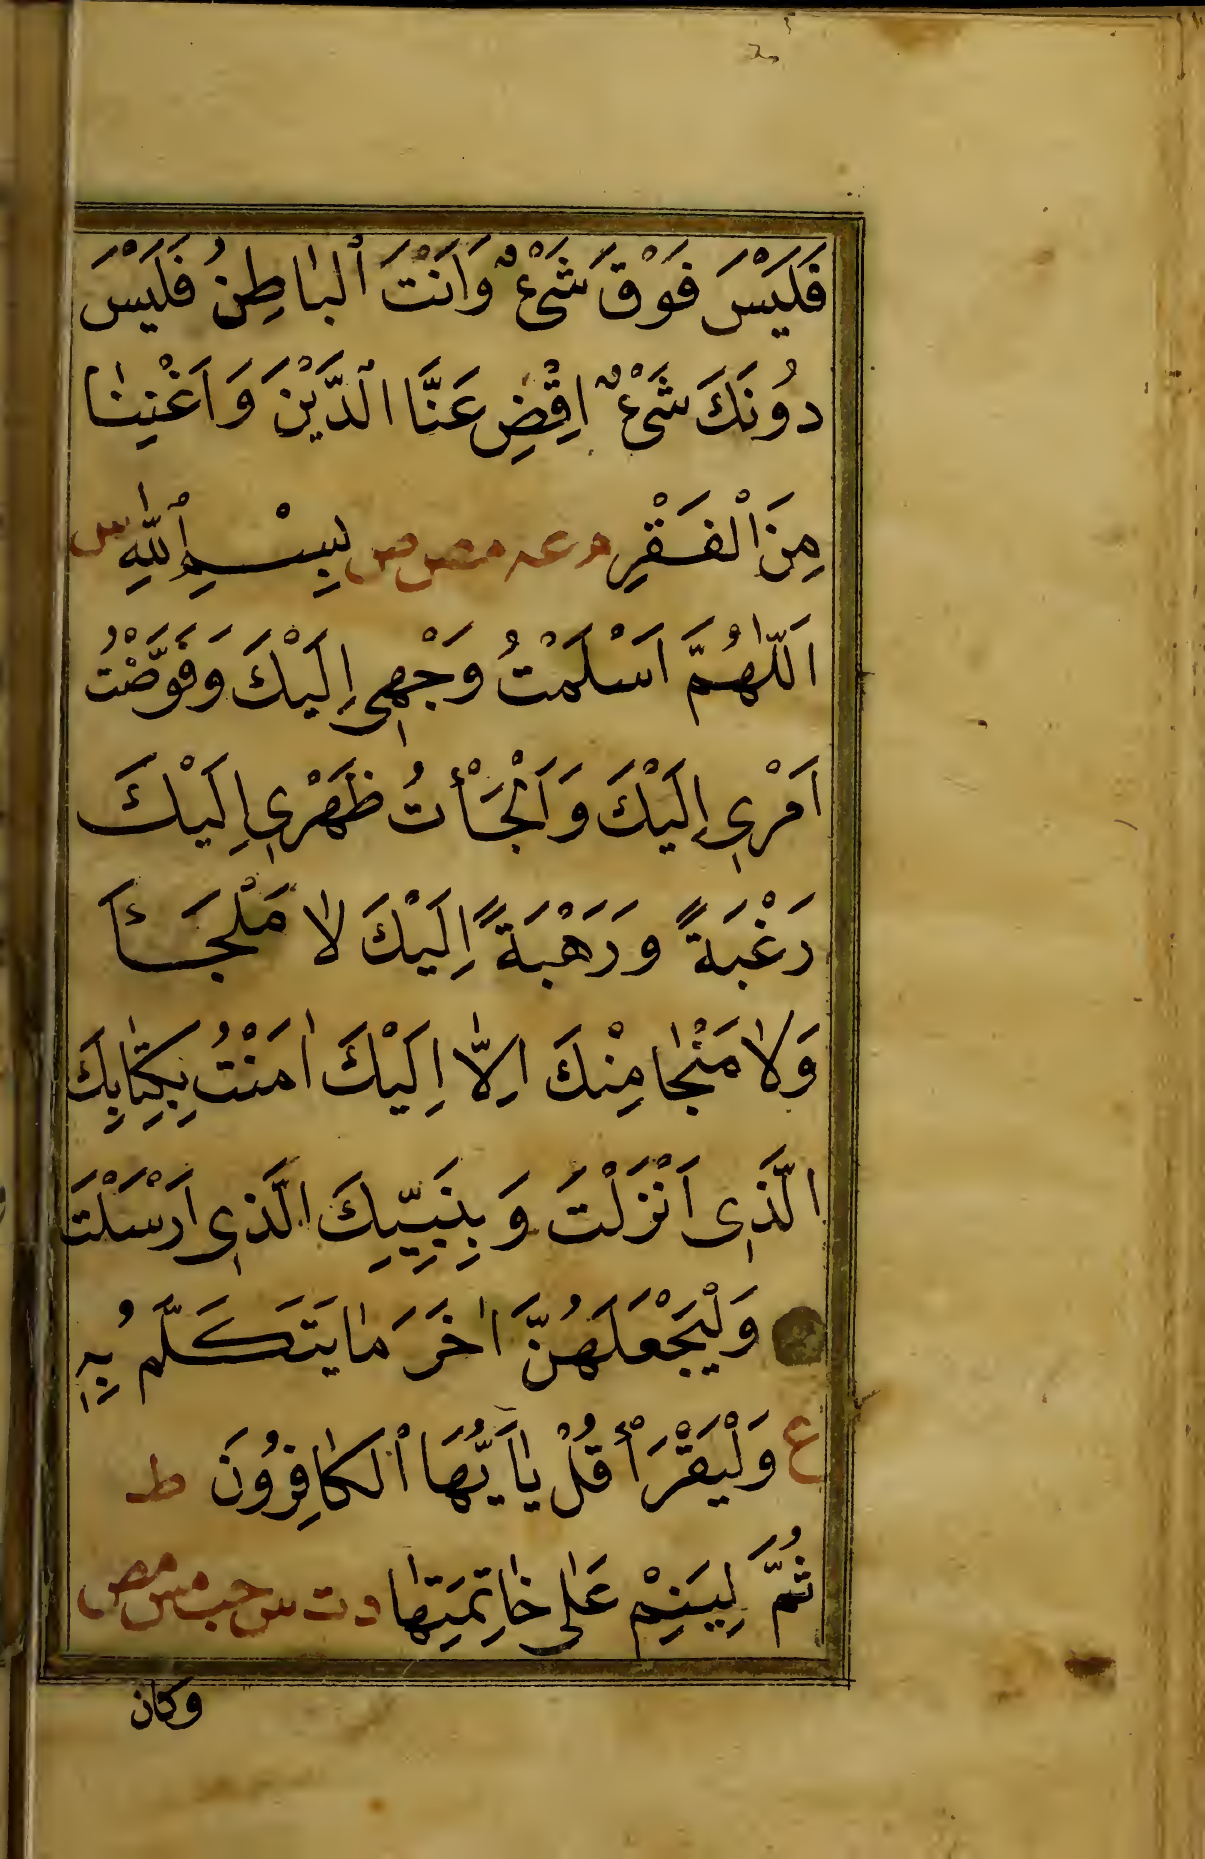 فَلَيْسَ فَوْقَ شَىْءٌ وَاَنْتَ الْبَاطِنُ فَلَيْسَ
دُونَكَ شَىْءٌ اِقْضِ عَنَّا الدَّيْنَ وَاَغْنِنَا
مِنَ الْفَقْرِ م عه مص ص بِسْمِ اللّٰهِ س
اَللّٰهُمَّ اَسْلَمْتُ وَجْهِى اِلَيْكَ وَفَوَّضْتُ
اَمْرِى اِلَيْكَ وَاَلْجَأْتُ ظَهْرِى اِلَيْكَ
رَغْبَةً وَرَهْبَةً اِلَيْكَ لَا مَلْجَئَا
وَلَا مَنْجَا مِنْكَ اِلَّا اِلَيْكَ اٰمَنْتُ بِكِتَابِكَ
الَّذِى اَنْزَلْتَ وَبِنَبِيِّكَ الَّذِى اَرْسَلْتَ
وَلْيَجْعَلْهُنَّ اٰخَرَ مَا يَتَكَلَّمُ بِهٖ
ع وَلْيَقْرَأْ قُلْ يَا اَيُّهَا الْكَافِرُونَ ط
ثُمَّ لِيَنَمْ عَلٰى خَاتِمَتِهَا د ت س حب مس مص
وكان